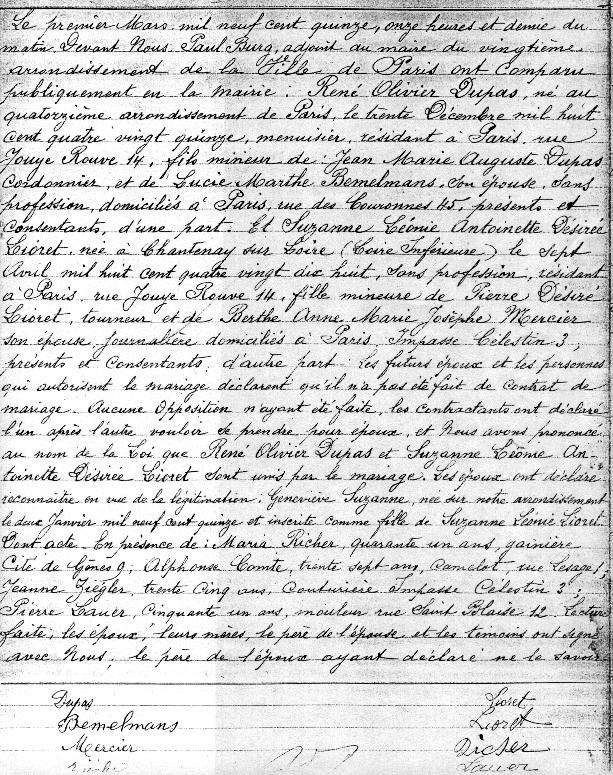 Le premier Mars mil neuf cent quinze, onze heures et demie du
matin Devant Nous Paul Burq, adjoint au maire du vingtième
arrondissement de la Ville de Paris ont Comparu
publiquement en la mairie : René Olivier Dupas, né au
quatorzième arrondissement de Paris, le trente Décembre mil huit
cent quatre vingt quinze, menuisier, résidant à Paris rue
Jouye Rouve 14, fils mineur de Jean Marie Auguste Dupas
Cordonnier, et de Lucie Marthe Bemelmans, son épouse, sans
profession, domiciliés à Paris, rue des Couronnes 45, présents et
Consentants, d'une part. Et Suzanne Léonie Antoinette Désirée
Lioret, née à Chantenay sur Loire (Loire Inférieure) le sept
Avril mil huit cent quatre vingt dix huit, sans profession, résidant
à Paris, rue Jouye Rouve 14, fille mineure de Pierre Désiré
Lioret, tourneur et de Berthe Anne Marie Josèphe Mercier
son épouse, journalière domiciliés à Paris, Impasse Célestin 3,
présents et Consentants, d'autre part. Les futurs époux et les personnes
qui autorisent le mariage déclarent qu'il n'a pas été fait de contrat de
mariage. Aucune Opposition n'ayant été faite, les contractants ont déclaré
l'un après l'autre vouloir se prendre pour époux, et Nous avons prononcé
au nom de la Loi que René Olivier Dupas et Suzanne Léonie An-
toinette Désirée Lioret sont unis par le mariage. Les époux ont déclaré
reconnaître en vue de la légitimation : Geneviève Suzanne, née sur notre arrondissement
le deux Janvier mil neuf cent quinze et inscrite comme fille de Suzanne Léonie Lioret.
Dont acte. En présence de : Maria Richer, quarante un ans, gainière
Cité de Gênes 9, Alphonse Comte, trente sept ans, Camelot, rue Lesage
Jeanne Ziégler, trente cinq ans, Couturière Impasse Célestin 3,
Pierre Lauer, Cinquante un ans, mouleur rue Saint Blaise 12. Lecture
faite, les époux, leurs mères, le père de l'épouse et les témoins ont signé
avec Nous, le père de l'époux ayant déclaré ne le savoir
Dupas
Bemelmans
Mercier
Lioret
Lioret
Richer
Lauer